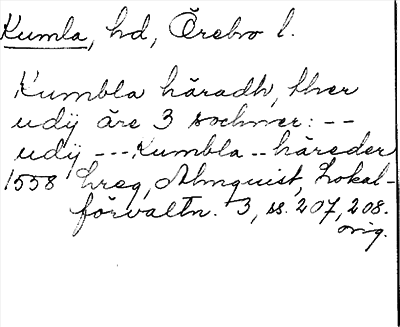 Kumla, hd, Örebro l.
Kumbla häradh, ther
udÿ äre 3 sochner: --
udÿ --- Kumbla -- häreder
1558 hreg, Almquist, Lokal-
förvaltn. 3, ss. 207, 208.
orig.